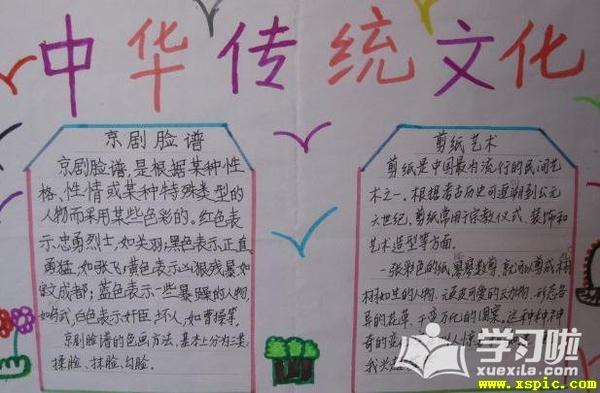 中华传统文化
京剧脸谱
京剧脸谱,是根据某种性
格、性情或某种特殊类型的
人物而采用某些色彩的。红色表
示忠勇烈士,如关羽;黑色表示正直、
勇猛,如张飞;黄色表示凶狠残暴如
宇文成都;蓝色表示一些暴躁的人物,
如马武;白色表示奸臣、坏人,如曹操等。
京剧脸谱的色画方法,基本上分为三类:
揉脸、抹脸、勾脸。
剪纸艺术
剪纸是中国最为流行的民间艺
术之一,根据考古历史可追溯到公元
六世纪,剪纸常用于宗教仪式、装饰和
艺术造型等方面。
一张彩色的纸,就可以剪成栩
栩如生的人物、可爱的动物、形态各
异的花草、千变万化的图案。这种神
奇的
我
学习啦
xuexila.com
www.xspic.com